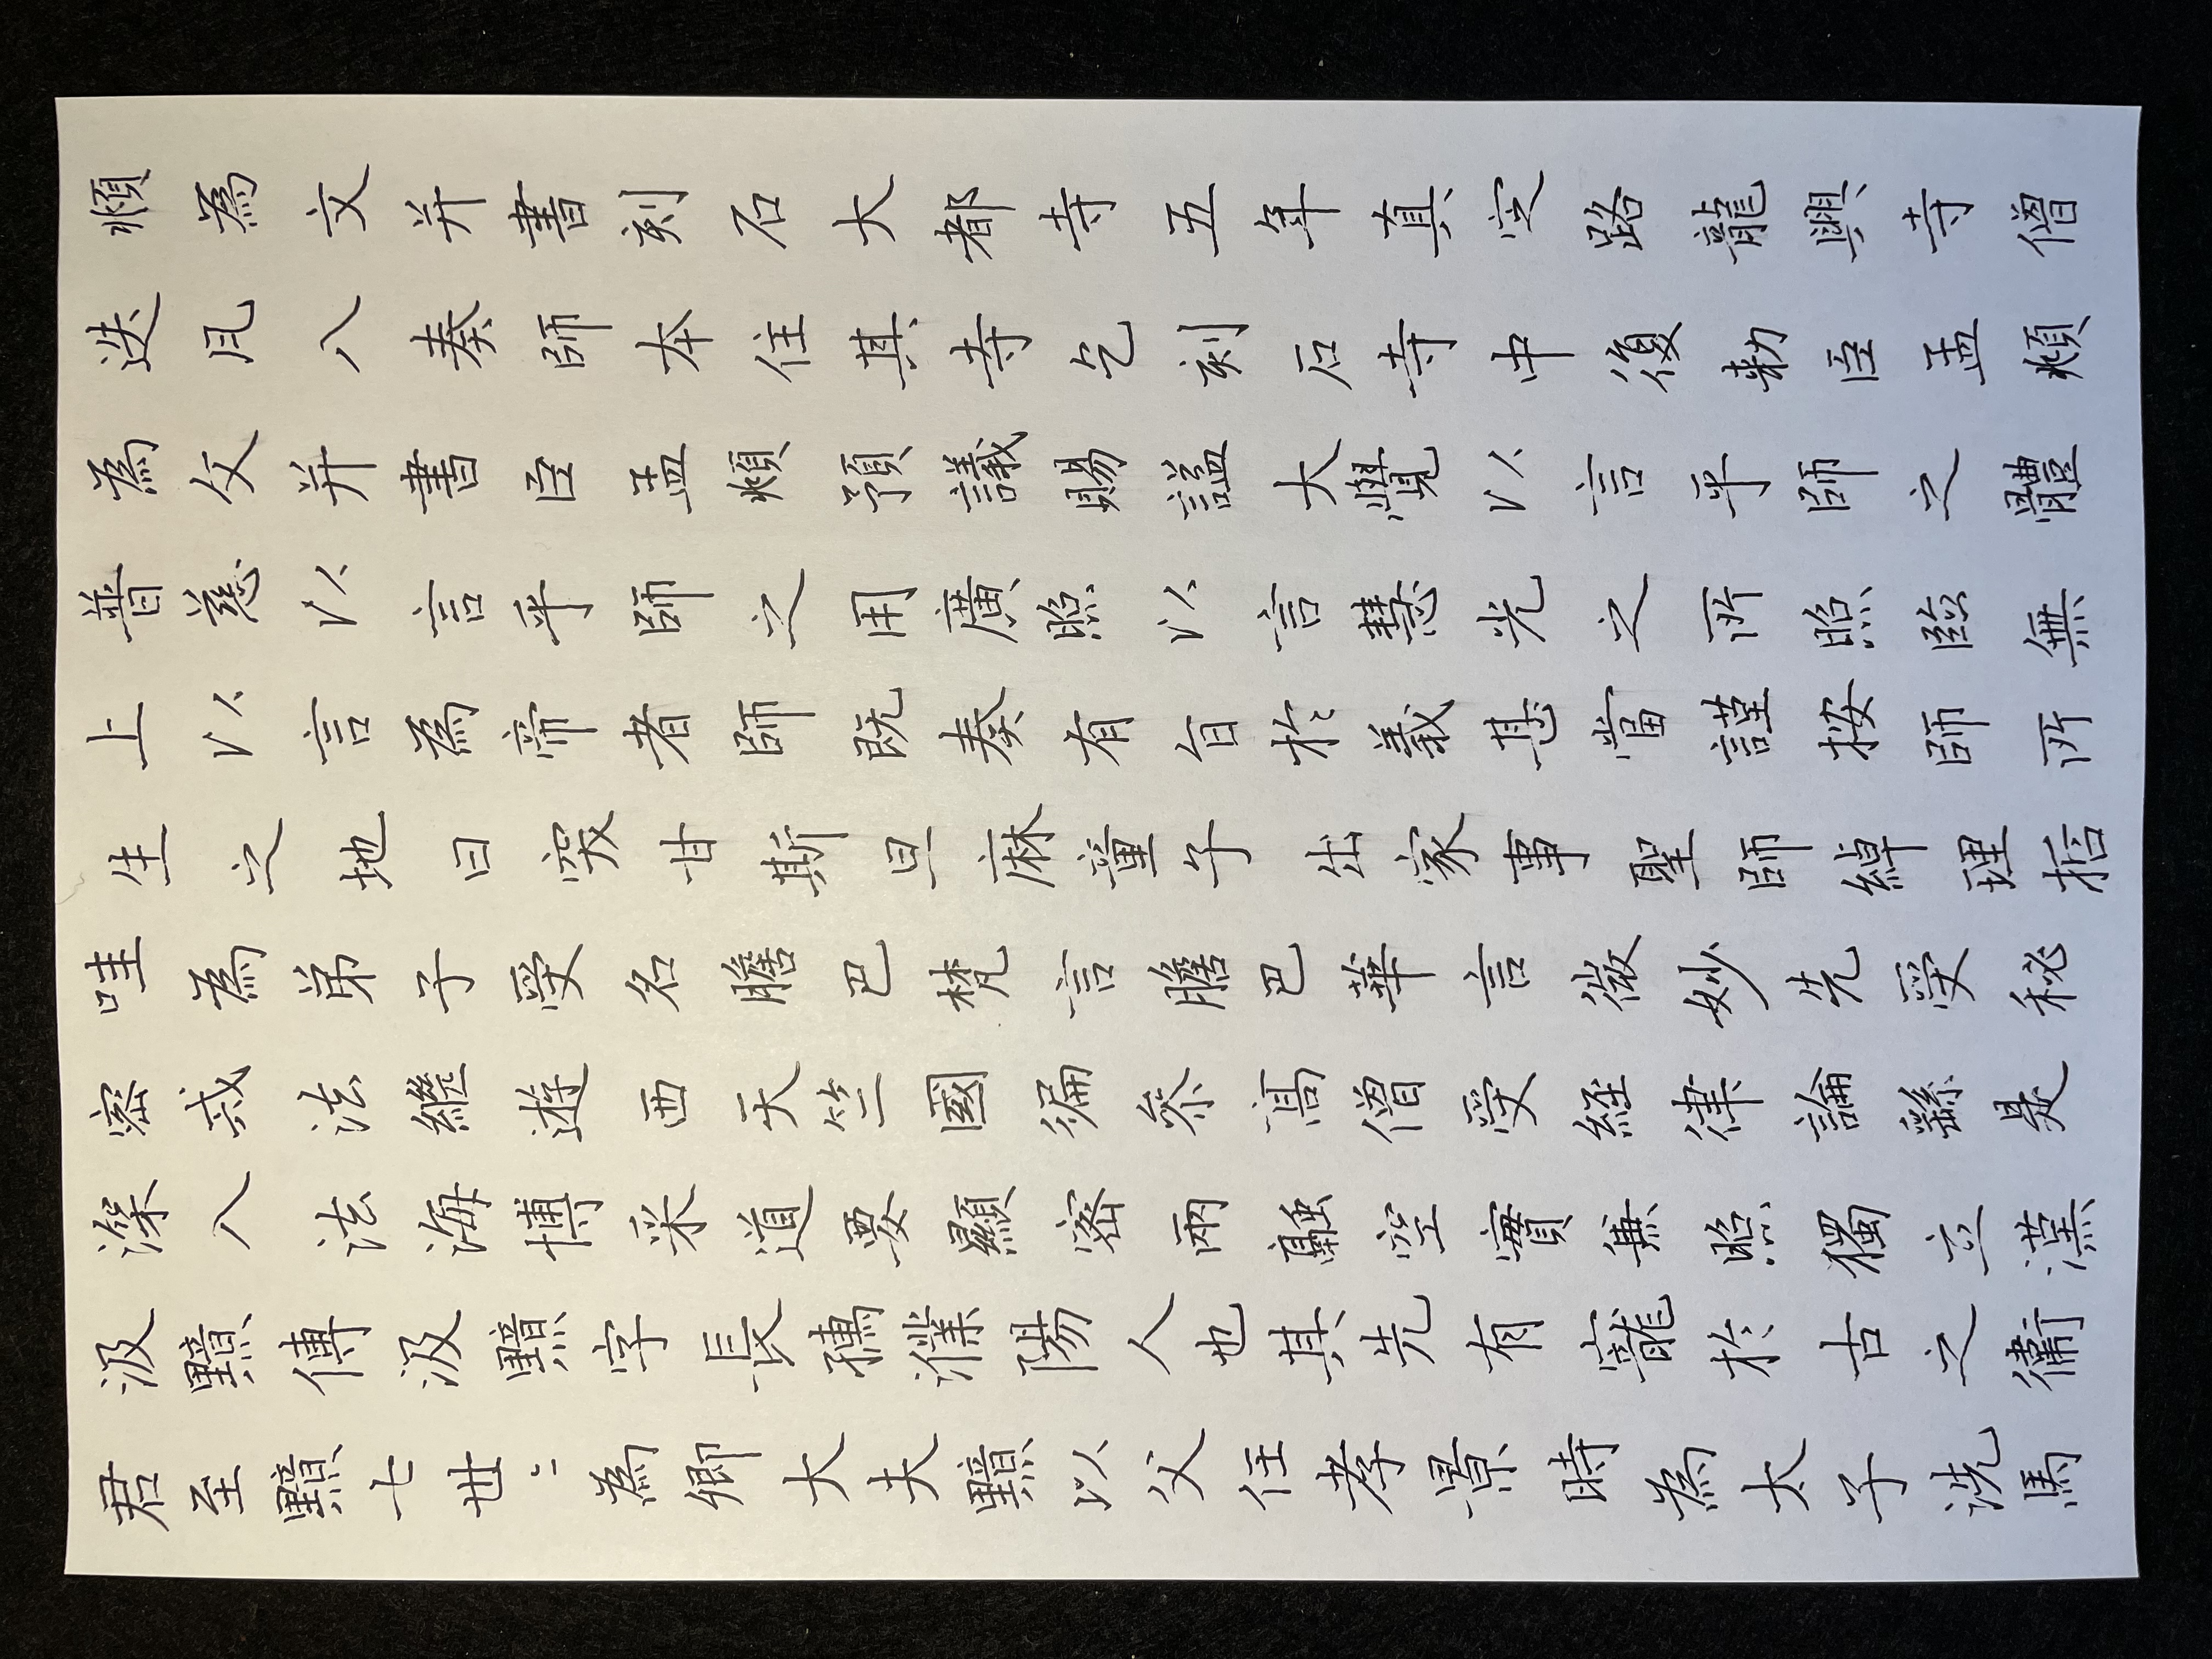 頫為文并書刻石大都寺五年真定路龍興寺僧
迭凡八奏師本住其寺乞刻石寺中復勑臣孟頫
為文并書臣孟頫預議賜謚大覺以言乎師之體
普慈以言乎師之用廣照以言慧光之所照臨無
上以言為帝者師既奏有旨於義甚當謹按師所
生之地曰突甘斯旦麻童子出家事聖師綽理哲
哇為弟子受名膽巴梵言膽巴華言微妙先受秘
密戒法繼遊西天竺國徧參高僧受經律論繇是
深入法海博采道要顯密兩融空實兼照獨立漢
汲黯傳汲黯字長孺濮陽人也其先有寵於古之衛
君至黯七世〻為卿大夫黯以父任孝景時為太子洗馬